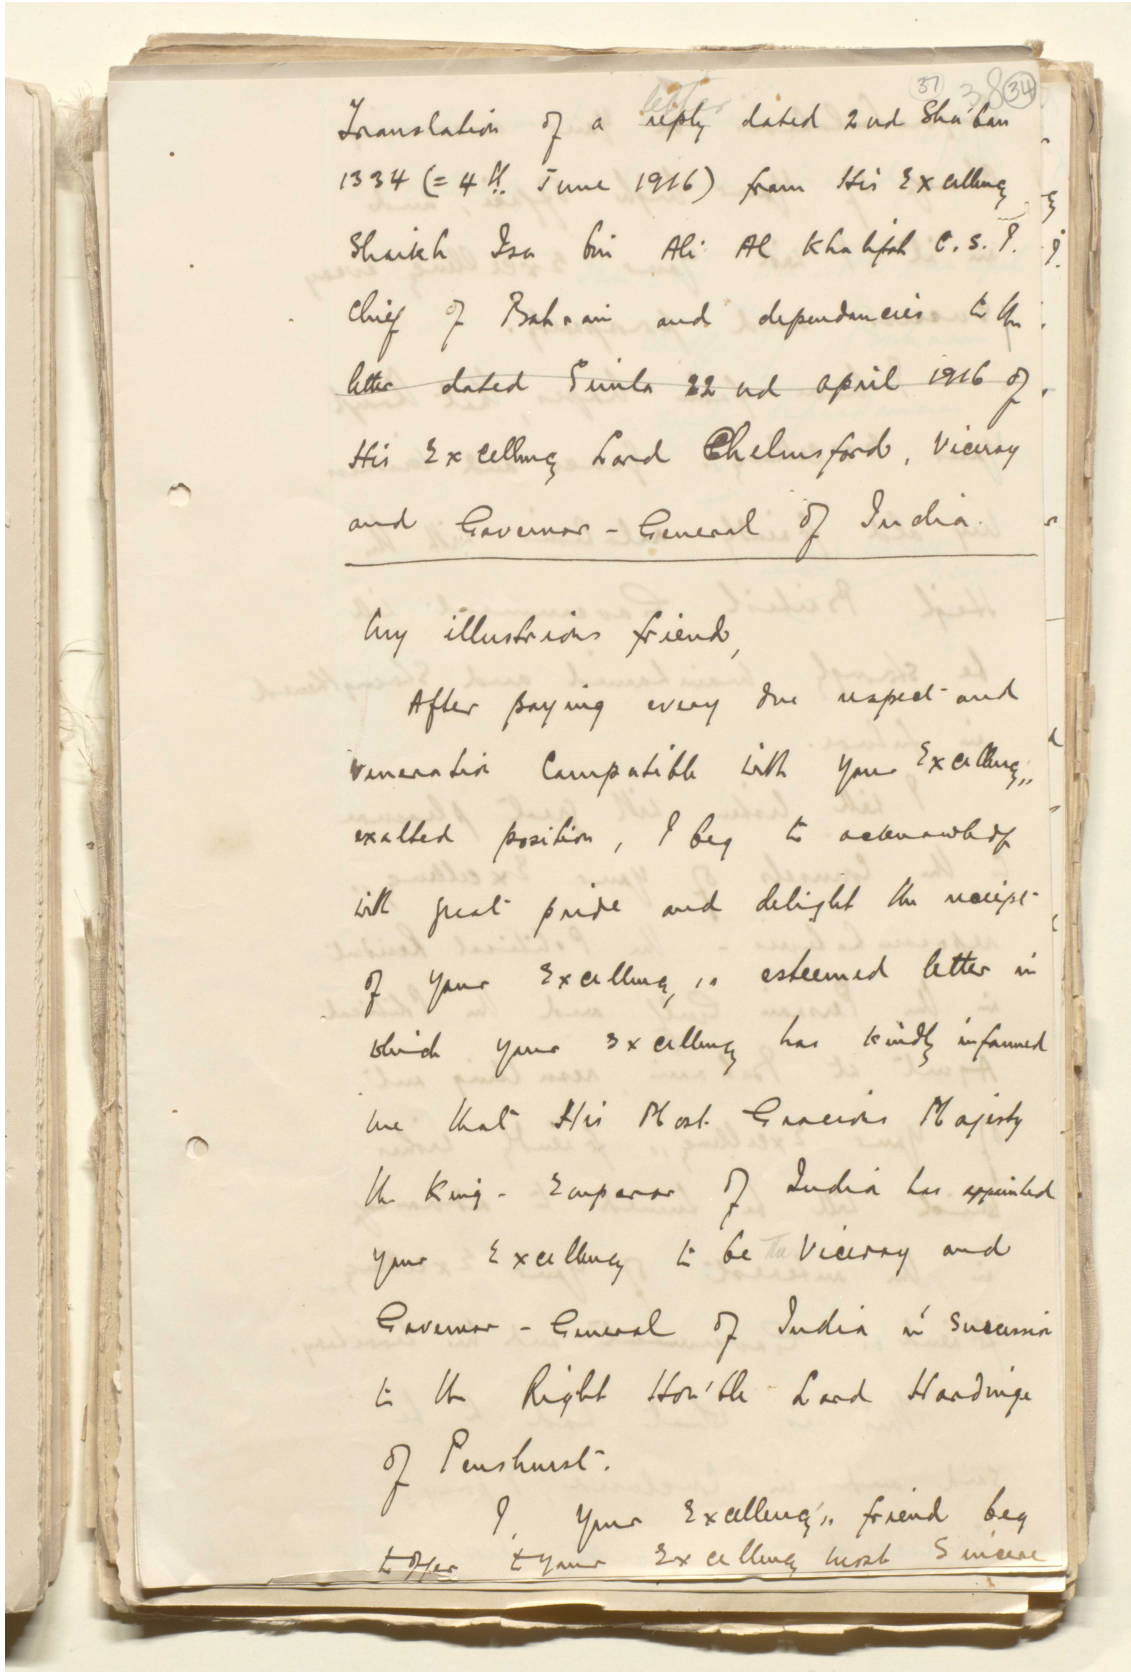 37 38 34
letter
Translation of a reply dated 2nd Sha'ban
1334 (= 4th. June 1916) from His Excellency
Shaikh Isa bin Ali Al Khalifah C.S.I.
Chief of Bahrain and dependancies to the
letter dated Simla 22nd april 1916 of
His Excellency Lord Chelmsford, Viceroy
and Governor-General of India.
My illustrious friend,
After paying every due respect and
veneration compatible with your Excellency's
exalted position, I beg to acknowledge
with great pride and delight the receipt
of your Excellency's esteemed letter in
which your Excellency has kindly informed
me that His Most Gracious Majesty
the King-Emperor of India has appointed
your Excellency to be the Viceroy and
Governor-General of India in succession
to the Right Hon'ble Lord Hardinge
of Penshurst.
I, your Excellency's friend beg
to offer to your Excellency most sincere